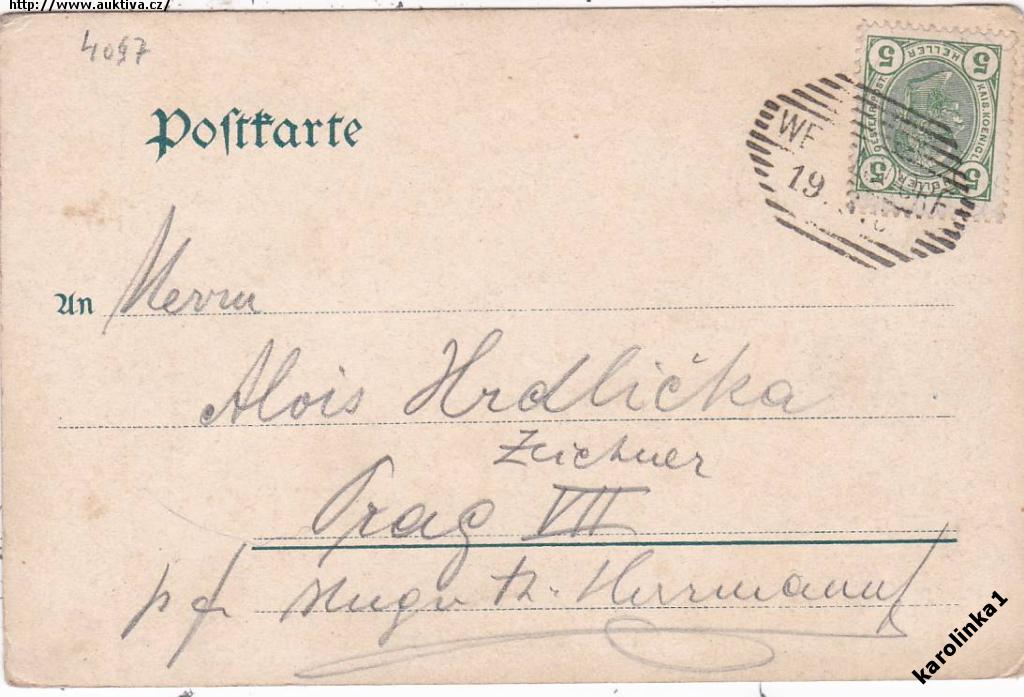 http://www.auktiva.cz/
4097
5 HELLER 5
KAIS. KOENIGL
OESTERR. POST.
5 HELLER 5
WE
19.
Postkarte
An Herrn
Alois Hrdlička
Zeichner
Prag VII
pf Hugo Th. Herrmann
karolinka1